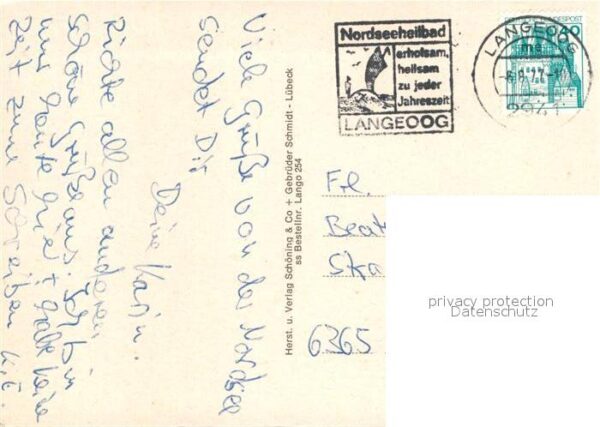 Viele Grüße von der Nordsee
sendet Dir
Deine Karin.
Richte allen anderen
schöne Grüße aus. Ich bin
nur heute hier + habe keine
Zeit zum Schreiben
Herst. u. Verlag Schöning & Co + Gebrüder Schmidt - Lübeck
ss Bestellnr. Lango 254
Nordseeheilbad
erholsam,
heilsam
zu jeder
Jahreszeit
LANGEOOG
LANGEOOG
2941
Frl.
Beat
6365
privacy protection
Datenschutz